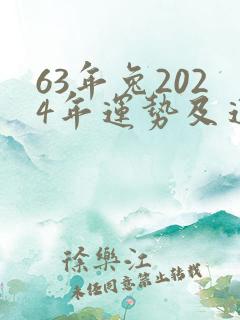 63年兔202
4年運勢及運
徐樂江
未经同意禁止转载